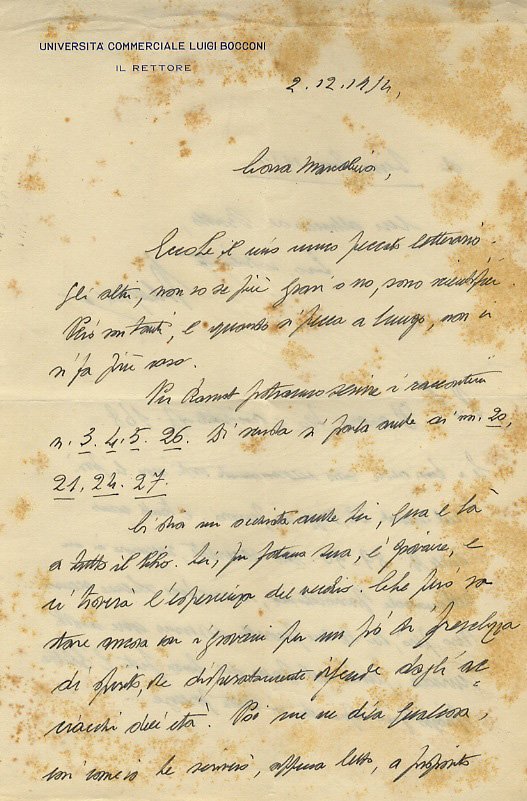 UNIVERSITÀ COMMERCIALE LUIGI BOCCONI
IL RETTORE
2.12.1954,
Cara
Eccole il mio primo peccato letterario.
Gli altri, non so se più gravi o no, sono scientifici.
Però son tanti, e quando si pecca a lungo, non ci
si fa più caso.
Per potranno servire i raccontini
n. 3. 4. 5. 26. Di scuola si parla anche ai nn. 20,
21, 24. 27.
Ci dia un occhiata anche lei, qua e là
a tutto il libro. Lei, per fortuna sua, è giovane, e
ci troverà l'esperienza del vecchio. Che però sa
stare ancora con i giovani per un pò di freschezza
di spirito, che disperatamente difende dagli ac=
ciacchi dell'età. Poi me ne dica qualcosa,
così come io le scriverò, appena letto, a proposito